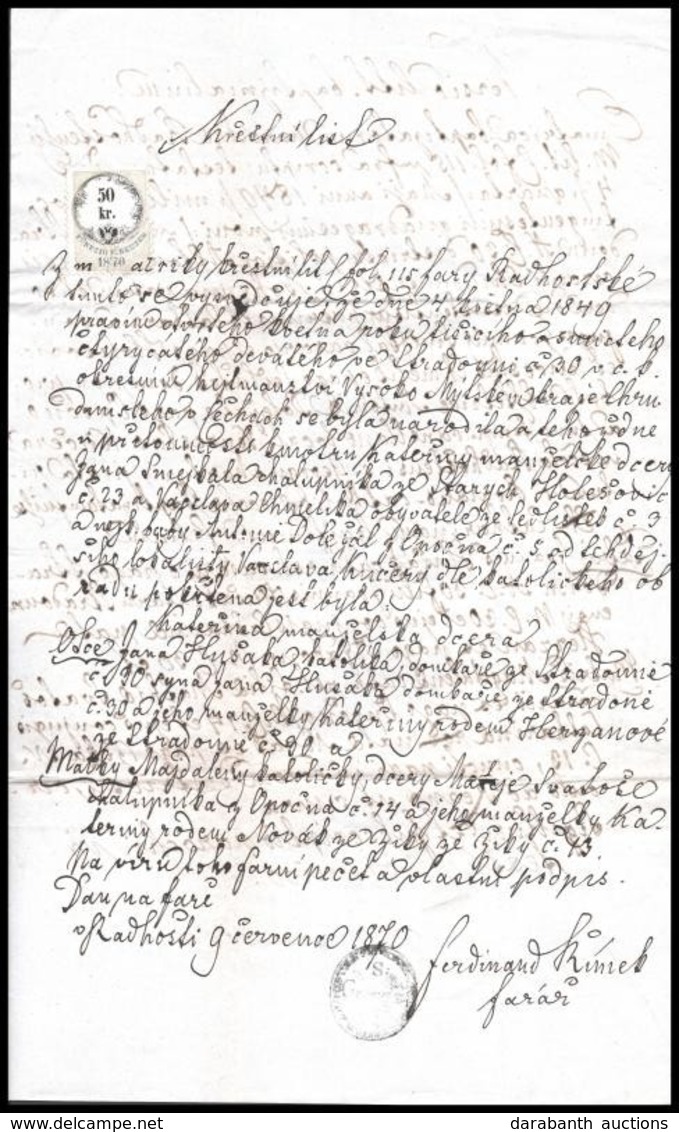 Křestní list
50
kr.
1870
Z matriky křestní lit. fol. 115 fary Radhostské
tímto se vysvědčuje, že dne 4. května 1849
pravím čtvrtého května roku tisícího osmistého
čtyrycatého devátého ve Stradouni čís 30 v c. k.
okresním hejtmanztví Vysoko Mýtském kraje Chru
dimského v Čechách se byla narodila a téhož dne
u přítomnosti kmotrů Kateřiny manželské dcery
Jana Smejkala chalupníka ze Starých Holešovic
č. 23 a Vácslava Chmelíka obyvatele ze Sedlistek č. 3
a báby Antonie Doležal z Opočna č. 5 od tehdej.
šího lokalisty Vacslava Kučery dle katolického ob
řadu pokřtěna jest byla:
Kateřina manželská dcera
Otce Jana Hušáka, katolíka, domkáře ze Stradouně
č. 30 syna Jana Hušáka domkáře ze Stradouně
č. 30 a jeho manželky Kateřiny rodem Herzanové
ze Stradouně č. 90 a
Matky Majdaleny katoličky, dcery Matěje Svatoše
chalupníka z Opočna č. 14 a jeho manželky Ka-
teřiny rodem Novák ze Ziky ze Ziky č. 13
Na víru toho farní pečeť a vlastní podpis.
Dán na faře
v Radhošti 9 červenee 1870
Ferdinand Kímek
farář
darabanth auctions